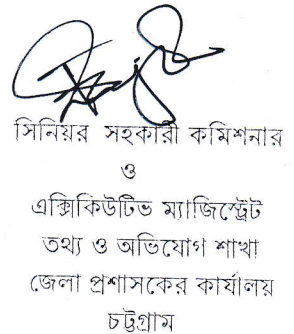 সিনিয়র সহকারী কমিশনার
ও
এক্সিকিউটিভ ম্যাজিস্ট্রেট
তথ্য ও অভিযোগ শাখা
জেলা প্রশাসকের কার্যালয়
চট্টগ্রাম